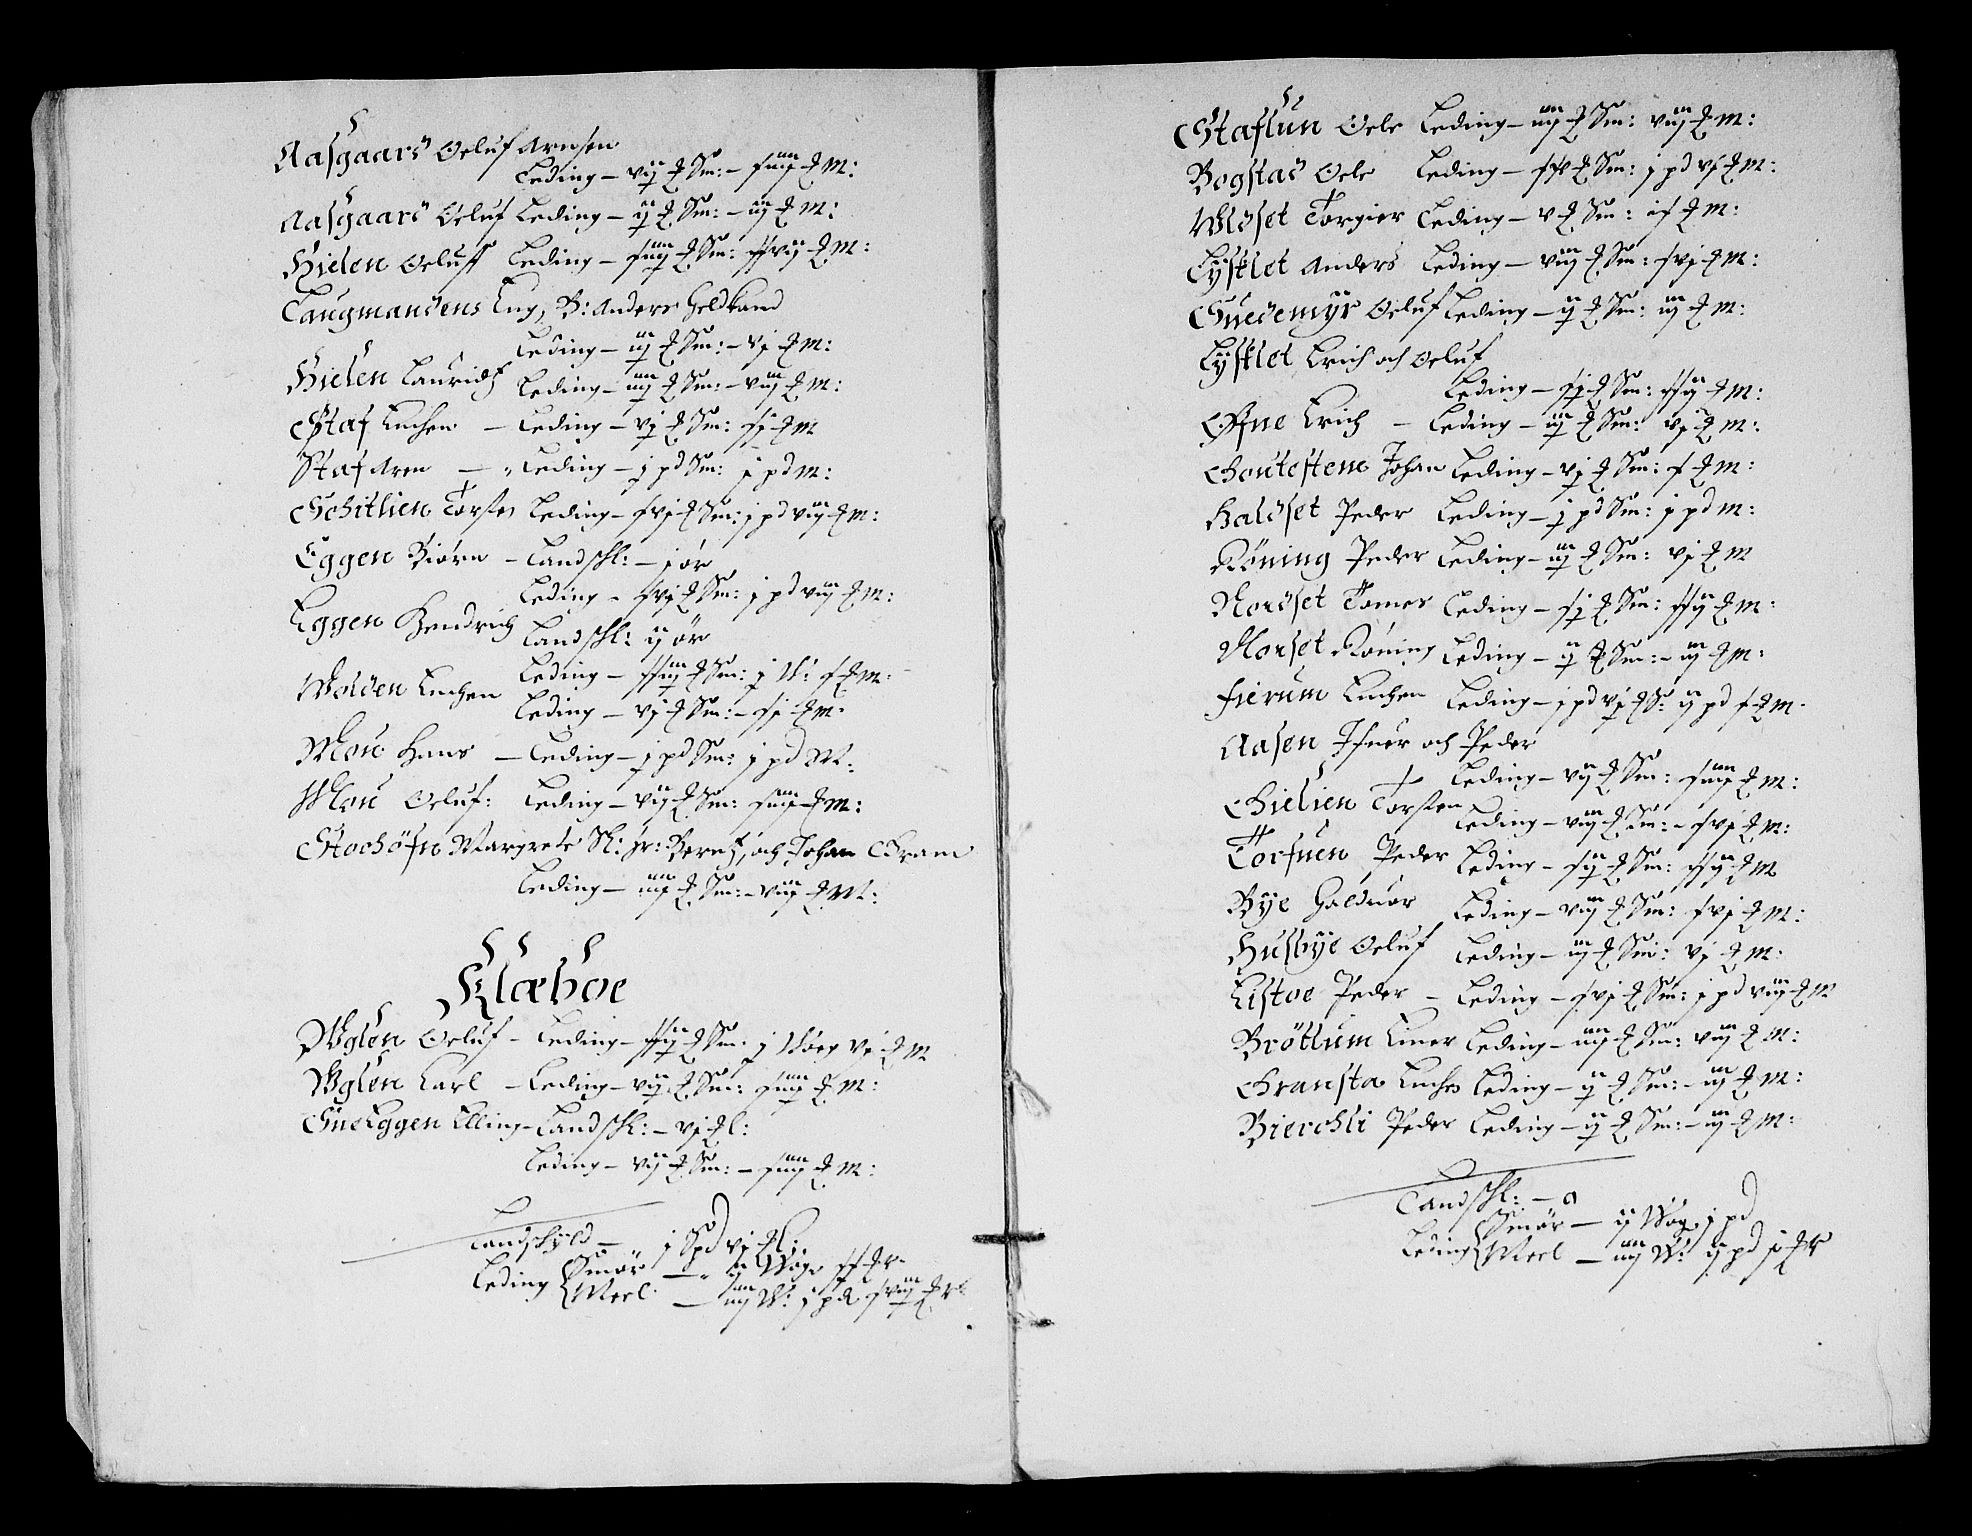 Aasgaard Oeluf Arnsen
Leding – vij ℔ Sm: – xiiij ℔ M:
Aasgaard Oeluf Leding – ij ℔ Sm: – iij ℔ M:
Hielen Oeluff Leding – xiiij ℔ Sm: xxvij ℔ M:
Laugmandens Eng, B: Anders Geldkand
Leding – iij ℔ Sm: – vj ℔ M:
Hielen Lauridtz Leding – iiij ℔ Sm: – viij ℔ M:
Staf Euchen – Leding – vj ℔ Sm: xj ℔ M
Staf Aren – Leding – j pd Sm: j pd M:
Schitlien Torsten Leding – xvj ℔ Sm: j pd viij ℔ M:
Eggen Biörn – Landschl: – j ör
Leding – xvj ℔ Sm: j pd viij ℔ M:
Eggen Hendrich Landschl: ij ör
Leding – xxiij ℔ Sm: j W: x ℔ M:
Wolden Euchen Leding – vj ℔ Sm: – xj ℔ M:
Mou Hans – Leding – j pd Sm: j pd M:
Mou Oeluf: Leding – vij ℔ Sm: xiiij ℔ M:
Stochöfn Margrete Sl: Hr: Berntz, och Johan Bram
Leding – iiij ℔ Sm: – viij ℔ M:
Klæboe
Uglen Oeluf – Leding – xxij ℔ Sm: j Wog vj ℔ M
Uglen Carl – Leding – vij ℔ Sm: xiiij ℔ M:
SueEggen Elling – Landschl: – vj ℔ l:
Leding – vij ℔ Sm: – xiiij ℔ M:
Landschyld – j Spd vj ℔ l:
Leding { Smör – ij Woge xx ℔r
{ Meel – iiij W: j pd xviij ℔r
Staflun Oele Leding – iiij ℔ Sm: viij ℔ M:
Bogstad Oele Leding – xv ℔ Sm: j pd vj ℔ M:
Uldset Torgier Leding – v ℔ Sm: ix ℔ M:
Lysklet Anders Leding – viij ℔ Sm: xvj ℔ M:
Suedemyr Oeluf Leding – ij ℔ Sm: iij ℔ M:
Lysklet Erich och Oeluf
Leding – xj ℔ Sm: xxij ℔ M:
Ofne Erich – Leding – iij ℔ Sm: vj ℔ M:
Johan Leding – vj ℔ Sm: x ℔ M:
Haldset Peder Leding – j pd Sm: j pd M:
Röning Peder Leding – iij ℔ Sm: vj ℔ M
Nordset Tomes Leding – xj ℔ Sm: xxij ℔ M:
Morset Röning Leding – ij ℔ Sm: – iij ℔ M:
Fierum Euchen Leding – j pd vj ℔ S: ij pd x ℔ M:
Aasen Ifuer och Peder
Leding – vij ℔ Sm: xiiij ℔ M:
Gielien Torsten Leding – viij ℔ Sm: – xvj ℔ M:
Torfuen Peder Leding – xij ℔ Sm: xxij ℔ M
Bye Halduor Leding – viij ℔ Sm: xvj ℔ M:
Husbye Oeluf Leding – iij ℔ Sm: vj ℔ M:
Listoe Peder – Leding – xvj ℔ Sm: j pd viij ℔ M
Bröttum Einer Leding – iiij ℔ Sm: viij ℔ M:
Gransta Euchen Leding – ij ℔ Sm: – iij ℔ M:
Bierchli Peder Leding – ij ℔ Sm: – iij ℔ M:
Landschl: – 0
Leding { Smör – ij Wog j pd
{ Meel – iiij W: ij pd j ℔r